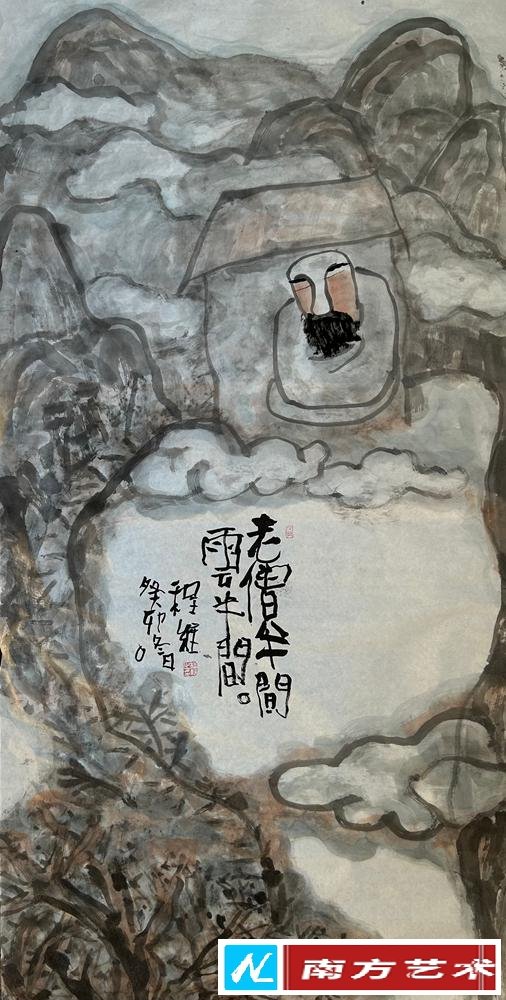 老僧半間
雲半間。
程維
癸卯冬日。
南方艺术